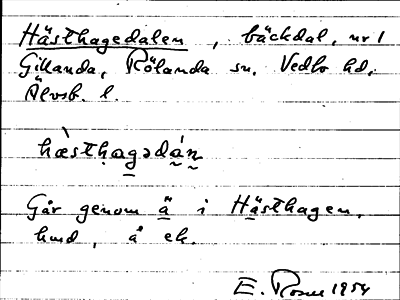 Hästhagedalen, bäckdal, nr 1
Gillanda, Rölanda sn. Vedbo hd,
Älvsb. l.
hæ̀stḥagədán
Går genom ä i Hästhagen,
hmd, å ek.
E. Rosell 1954